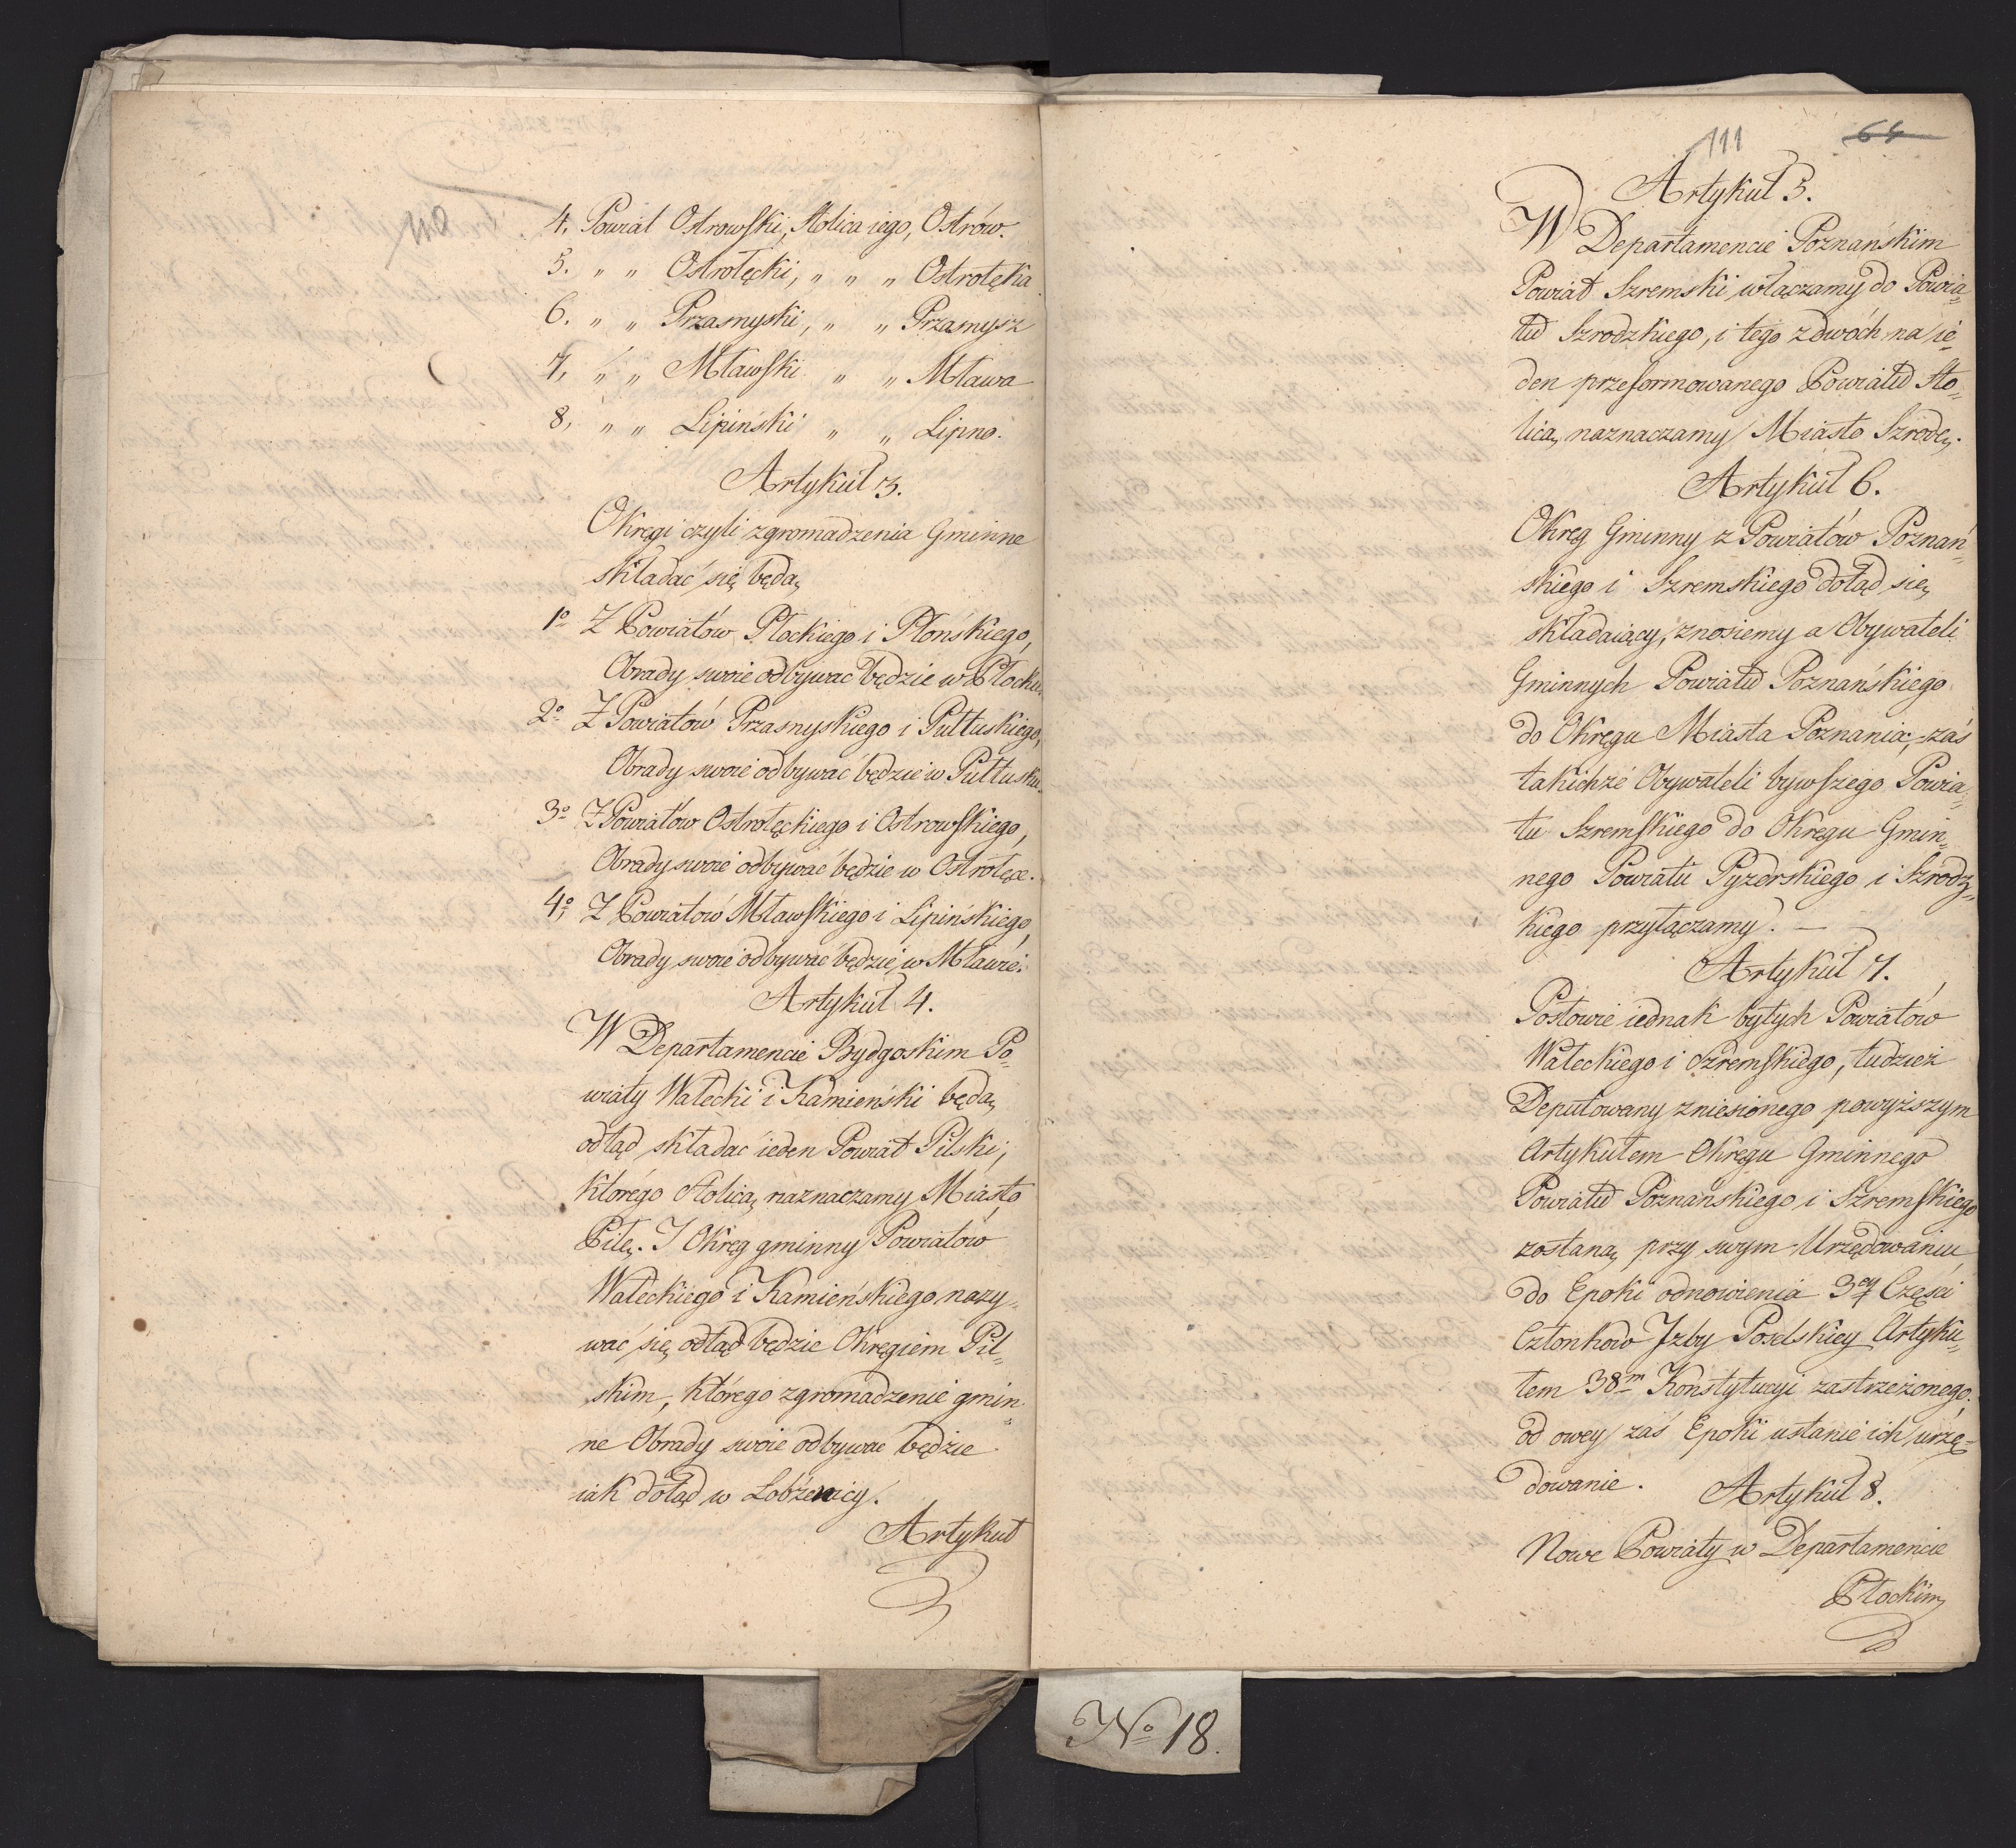 110
4. Powiat Ostrowski, Stolica iego, Ostrów.
5. " " Ostrołęcki, " " " Ostrołęka
6. " " Przasnyski, " " Przasnysz
7, " " Mławski " " Mława
8, " " Lipiński " " Lipno.
Artykuł 3.
Okręgi czyli zgromadzenia Gminne
składać się będą,
1o Z Powiatów Płockiego i Płońskiego,
Obrady swoie odbywać będzie w Płocku,
2o Z Powiatów Przasnyskiego i Pułtuskiego,
Obrady swoie odbywać będzie w Pułtusku.
3o Z Powiatów Ostrołęckiego i Ostrowskiego,
Obrady swoie odbywać będzie w Ostrołęce.
4o Z Powiatów Mławskiego i Lipińskiego,
Obrady swoie odbywać będzie w Mławie.
Artykuł 4.
W Departamencie Bydgoskim Po=
wiaty Wałecki i Kamieński będą
odtąd składać ieden Powiat Pilski,
którego Stolicą naznaczamy Miasto
Piłę. I Okręg gminny Powiatów
Wałeckiego i Kamieńskiego nazy=
wać się odtąd będzie Okręgiem Pil=
skim, którego zgromadzenie gmin=
ne Obrady swoie odbywać będzie
iak dotąd w Łobżenicy.
Artykuł
111 64
Artykuł 5.
W Departamencie Poznańskim
Powiat Szremski włączamy do Powia=
tu Szrodzkiego, i tego z dwóch na ie=
den przeformowanego Powiatu Sto=
licą naznaczamy Miasto Szrodę.
Artykuł 6.
Okreg Gminny z Powiatów Poznań=
skiego i Szremskiego dotąd się
składaiący, znosiemy a Obywateli
Gminnych Powiatu Poznańskiego
do Okręgu Miasta Poznania, zaś
takichże Obywateli bywszego Powia=
tu Szremskiego do Okręgu Gmin=
nego Powiatu Pyzerskiego i Szrodz=
kiego przyłączamy. —
Artykuł 7.
Posłowie iednak byłych Powiatów
Wałeckiego i Szremskiego, tudzież
Deputowany zniesionego powyższym
Artykułem Okręgu Gminnego
Powiatu Poznańskiego i Szremskiego
zostaną przy swym Urzędowaniu
do Epoki odnowienia 3ey Części
Członków Jzby Poselskiey Artyku=
łem 38m Konstytucyi zastrzeżonego.
od owey zaś Epoki ustanie ich urzę=
dowanie.
Artykuł 8.
Nowe Powiaty w Departamencie
Płockim
No 18.